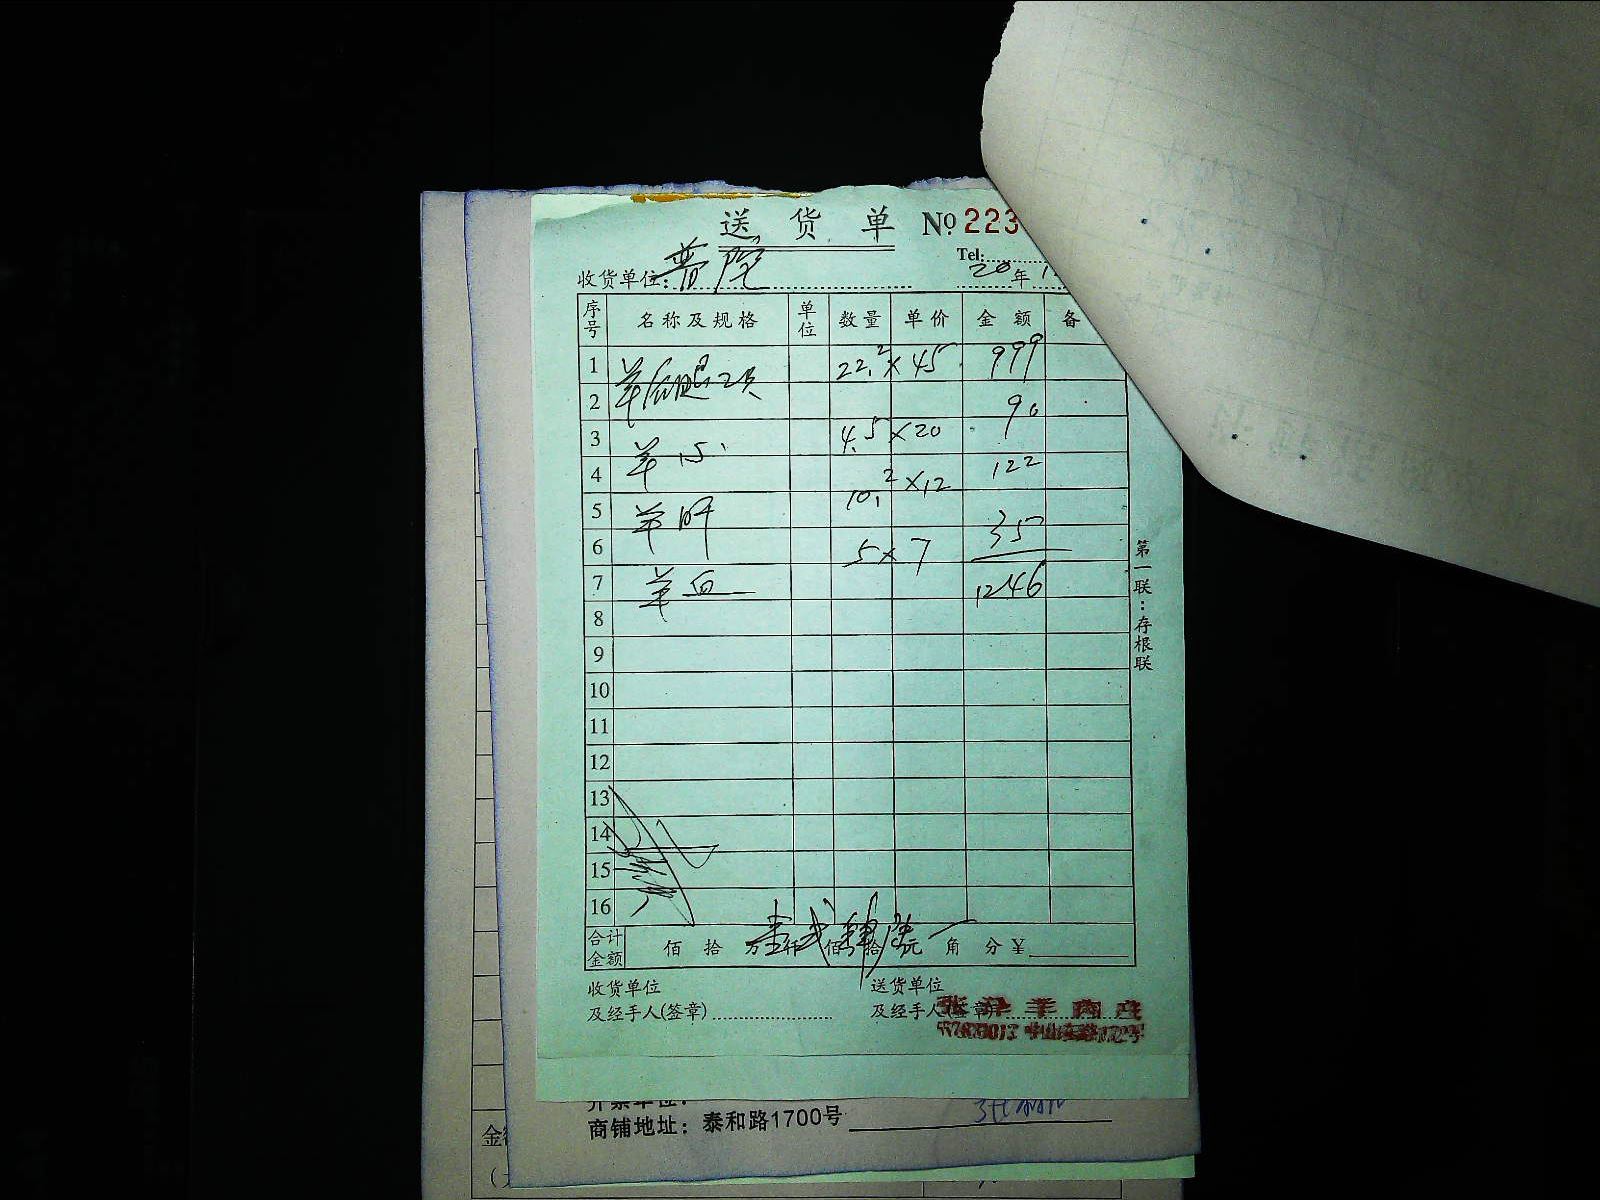 送货单 No 223
Tel:
收货单位: 普院 20年1
序号 名称及规格 单位 数量 单价 金额 备
1 22.2 × 45 999
2 90
3 羊心 4.5 × 20
4 10.2 × 12 122
5 羊肝
6 5 × 7 35
7 羊血 1246
8
9
10
11
12
13
14
15
16
合计金额 佰 拾 万 壹 仟 贰 佰 肆 拾 陆 元 角 分 ¥
收货单位 送货单位
及经手人(签章) 及经手人(签章)
羊肉
第一联:存根联
开票单位:
商铺地址: 泰和路1700号